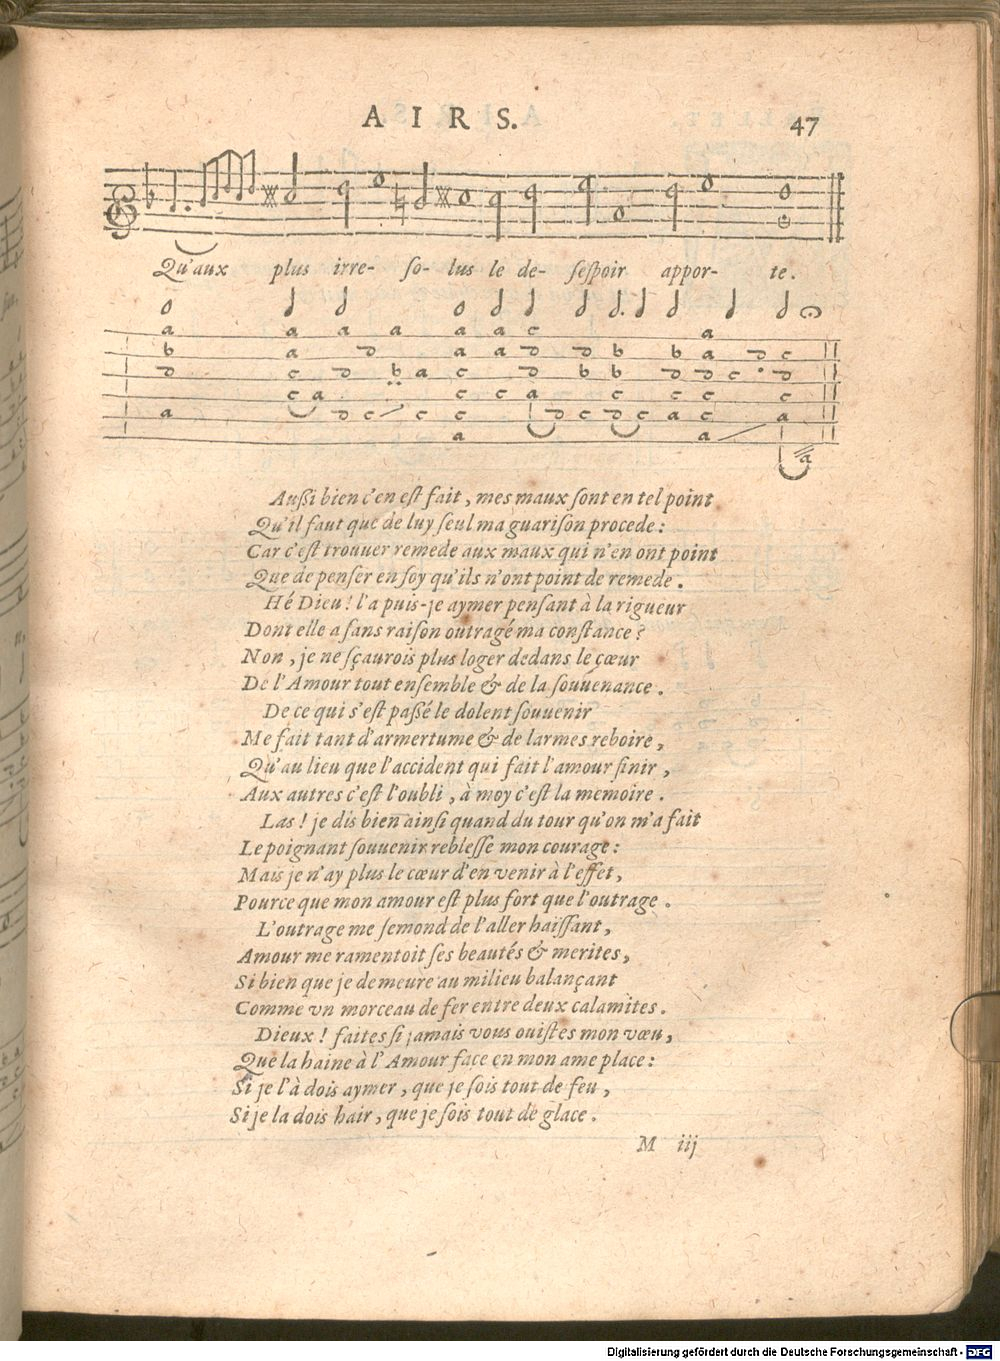 AIRS.
47
Qu'aux plus irre- so- lus le de- sespoir appor- te.
a a a a a a c a
b a d a a d d b b a d c
d c d b a c d b b d d c d
c a c c a c c c
a d c c c d c d c a c a
a a
a
Aussi bien c'en est fait, mes maux sont en tel point
Qu'il faut que de luy seul ma guarison procede:
Car c'est trouuer remede aux maux qui n'en ont point
Que de penser en soy qu'ils n'ont point de remede.
Hé Dieu! l'a puis-je aymer pensant à la rigueur
Dont elle a sans raison outragé ma constance?
Non, je ne sçaurois plus loger dedans le çœur
De l'Amour tout ensemble & de la souuenance.
De ce qui s'est passé le dolent souuenir
Me fait tant d'armertume & de larmes reboire,
Qu'au lieu que l'accident qui fait l'amour finir,
Aux autres c'est l'oubli, à moy c'est la memoire.
Las! je dis bien ainsi quand du tour qu'on m'a fait
Le poignant souuenir reblesse mon courage:
Mais je n'ay plus le cœur d'en venir à l'effet,
Pource que mon amour est plus fort que l'outrage.
L'outrage me semond de l'aller haïssant,
Amour me ramentoit ses beautés & merites,
Si bien que je demeure au milieu balançant
Comme vn morceau de fer entre deux calamites.
Dieux! faites si jamais vous ouistes mon vœu,
Que la haine à l'Amour face en mon ame place:
Si je l'à dois aymer, que je sois tout de feu,
Si je la dois hair, que je sois tout de glace.
M iij
Digitalisierung gefördert durch die Deutsche Forschungsgemeinschaft - DFG